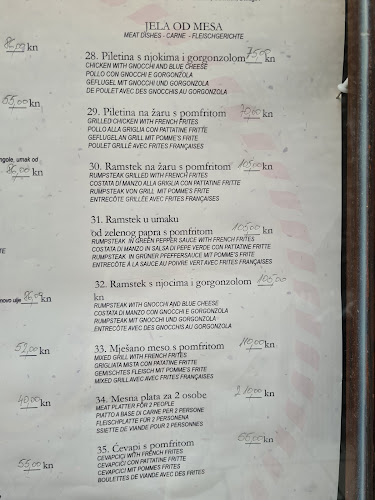 JELA OD MESA
MEAT DISHES - CARNE - FLEISCHGERICHTE
86,00 kn
28. Piletina s njokima i gorgonzolom 75,00 kn
CHICKEN WITH GNOCCHI AND BLUE CHEESE
POLLO CON GNOCCHI E GORGONZOLA
GEFLÜGEL MIT GNOCCHI UND GORGONZOLA
DE POULET AVEC DES GNOCCHIS AU GORGONZOLA
55,00 kn
29. Piletina na žaru s pomfritom 70,00 kn
GRILLED CHICKEN WITH FRENCH FRITES
POLLO ALLA GRIGLIA CON PATTATINE FRITTE
GEFLÜGELAN GRILL MIT POMME'S FRITE
POULET GRILLÉ AVEC FRITES FRANÇAISES
ngole, umak od
86,00 kn
30. Ramstek na žaru s pomfritom 105,00 kn
RUMPSTEAK GRILLED WITH FRENCH FRITES
COSTATA DI MANZO ALLA GRIGLIA CON PATTATINE FRITTE
RUMPSTEAK VON GRILL MIT POMME'S FRITE
ENTRECÔTE GRILLÉE AVEC FRITES FRANÇAISES
31. Ramstek u umaku
od zelenog papra s pomfritom 105,00 kn
RUMPSTEAK IN GREEN PEPPER SAUCE WITH FRENCH FRITES
COSTATA DI MANZO IN SALSA DI PEPE VERDE CON PATTATINE FRITTE
RUMPSTEAK IN GRÜNER PFEFFERSAUCE MIT POMME'S FRITE
ENTRECÔTE À LA SAUCE AU POIVRE VERT AVEC FRITES FRANÇAISES
TE
32. Ramstek s njocima i gorgonzolom 105,00
kn
novo ulje 86,00 kn
RUMPSTEAK WITH GNOCCHI AND BLUE CHEESE
COSTATA DI MANZO CON GNOCCHI E GORGONZOLA
RUMPSTEAK MIT GNOCCHI UND GORGONZOLA
ENTRECÔTE AVEC DES GNOCCHIS AU GORGONZOLA
52,00 kn
33. Mješano meso s pomfritom 110,00 kn
MIXED GRILL WITH FRENCH FRITES
GRIGLIATA MISTA CON PATATINE FRITTE
GEMISCHTES FLEISCH MIT POMME'S FRITE
MIXED GRILL AVEC AVEC FRITES FRANÇAISES
40,00 kn
34. Mesna plata za 2 osobe 210,00 kn
MEAT PLATTER FOR 2 PEOPLE
PIATTO A BASE DI CARNE PER 2 PERSONE
FLEISCHPLATTE FÜR 2 PERSONENA
SSIETTE DE VIANDE POUR 2 PERSONNES
55,00 kn
35. Ćevapi s pomfritom 65,00 kn
CEVAPCICI WITH FRENCH FRITES
CEVAPCICI CON PATTATINE FRITTE
CEVAPCICI MIT POMMES FRITES
BOULETTES DE VIANDE AVEC DES FRITES